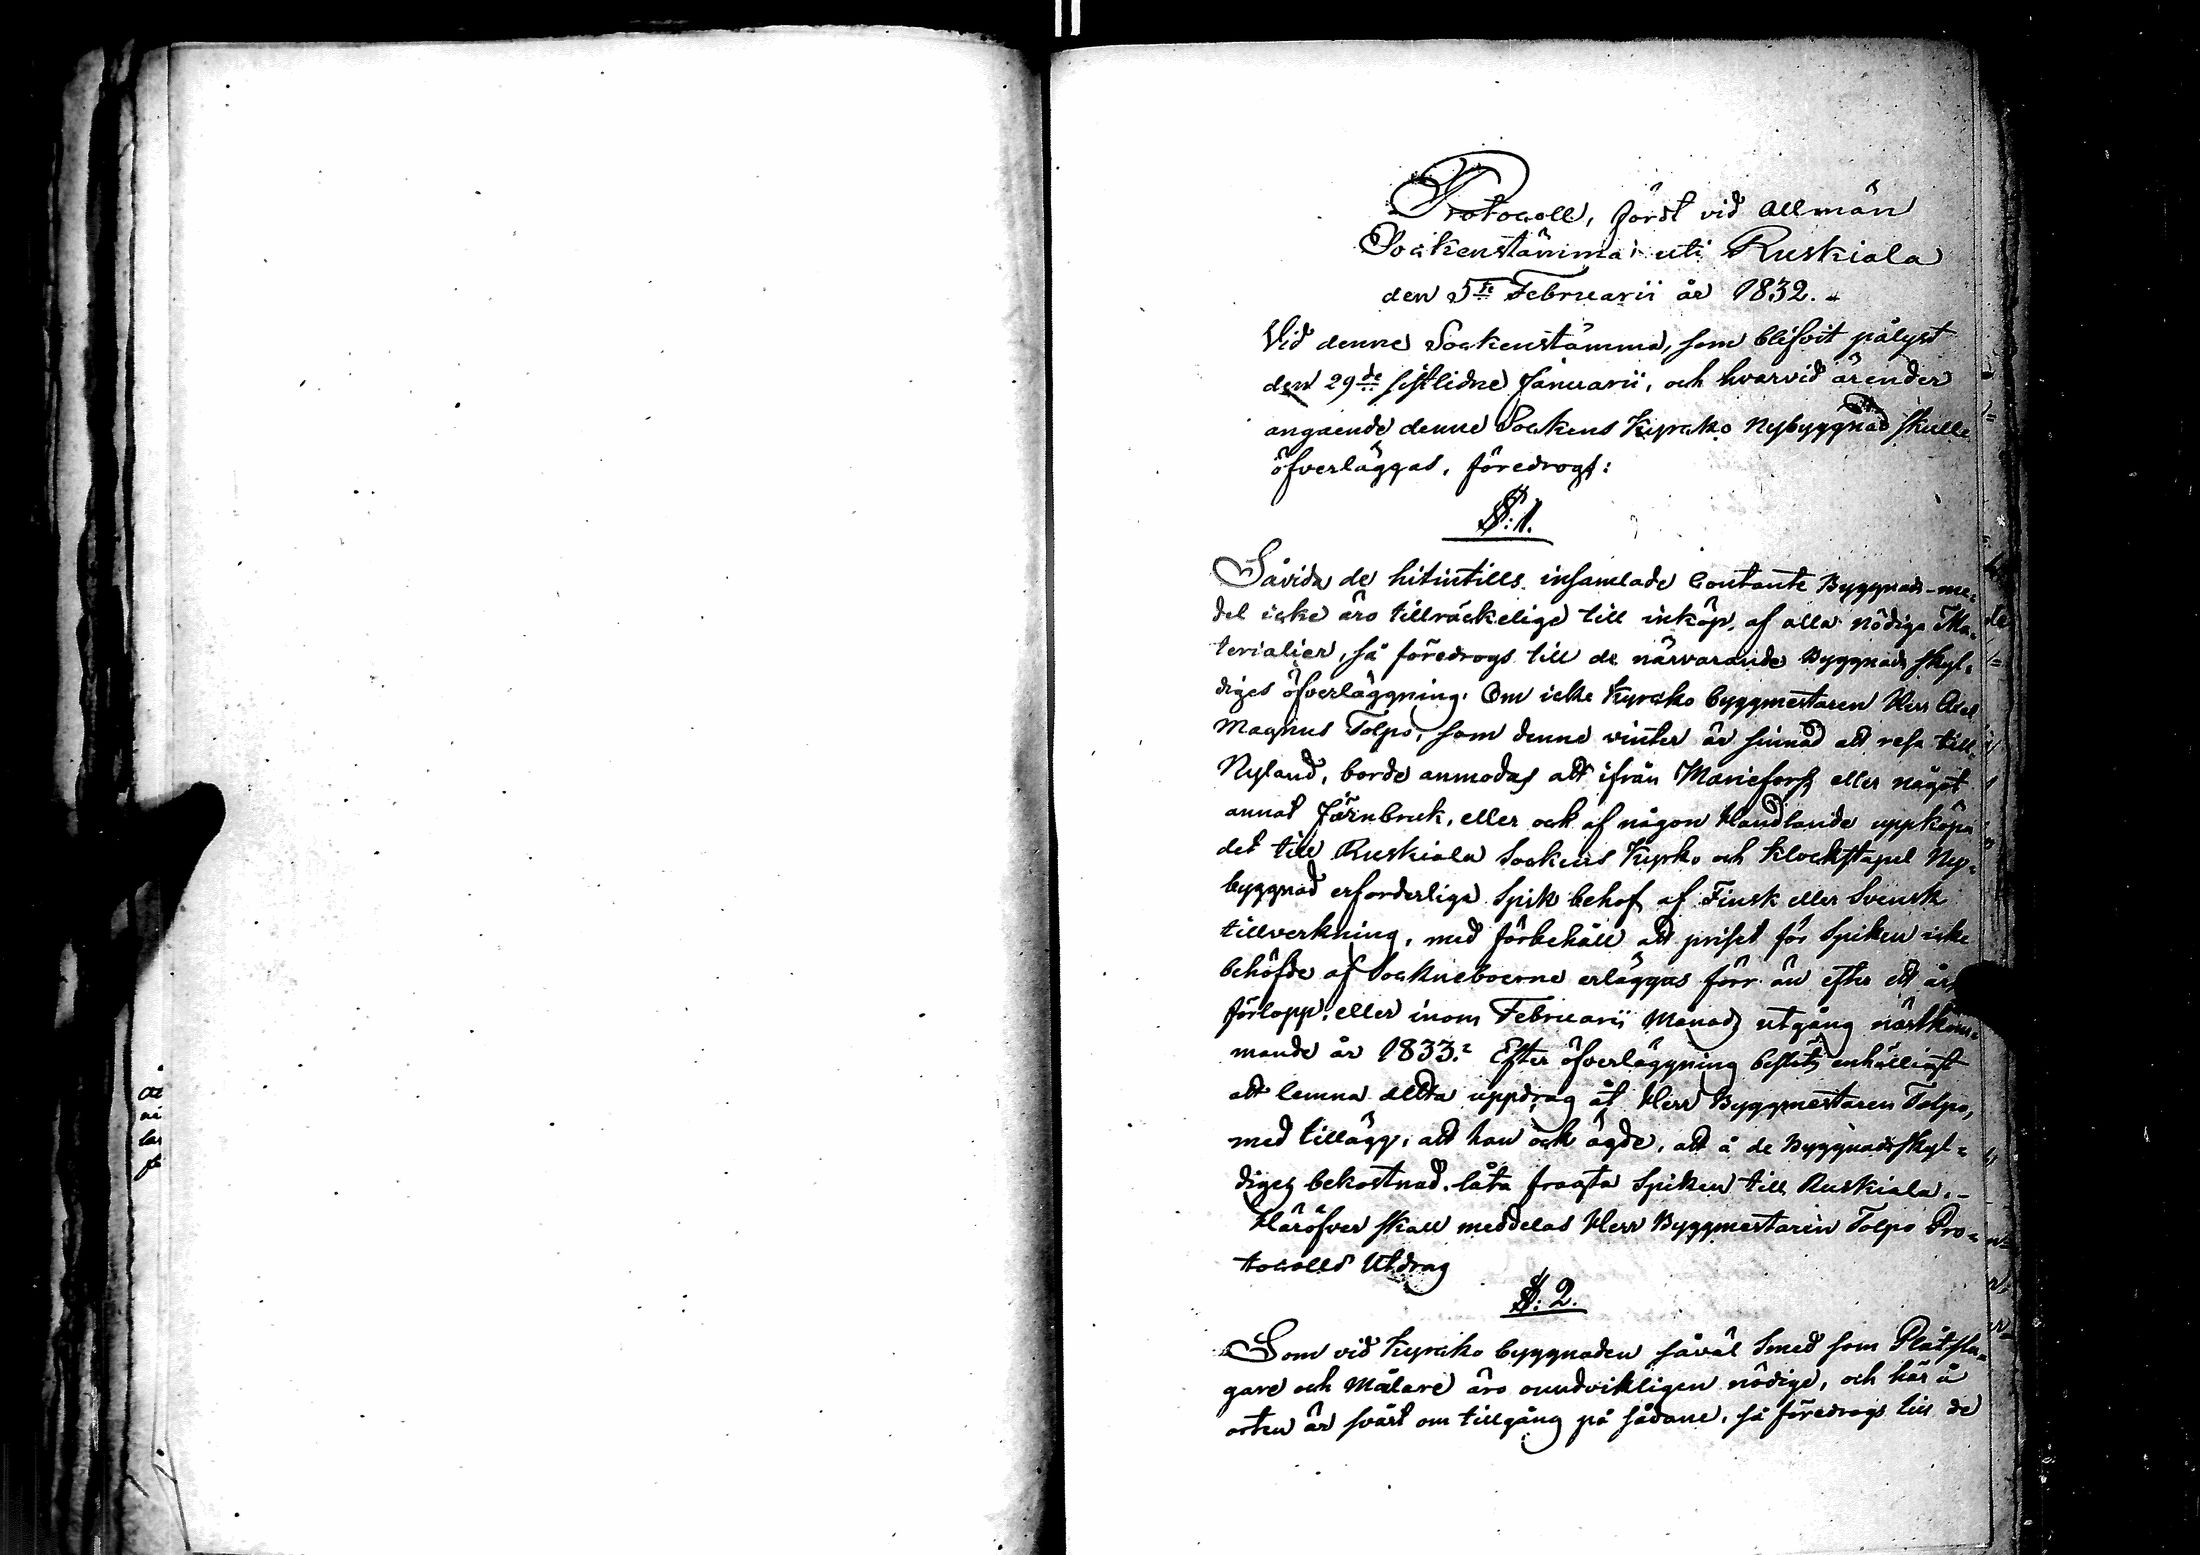 Protocoll, fördt vid allmän
Sockenstämma uti Ruskiala
den 5te Februarii år 1832.
Vid denne Sockenstämma, som blifvit pålyst
den 29de sistlidne Januarii, och hvarvid ärender
angående denne Sockens Kyrcko Nybyggnad skulle
öfverläggas, föredrogs:
§: 1.
Såvida de hitintills insamlade Contante Byggnads-me=
del icke äro tillräckelige till inköp af alla nödiga Ma=
terialier, så föredrogs till de närvarande Byggnads skyl=
diges öfverläggning: Om icke Kyrcko byggmestaren Herr Axel
Magnus Tolpo, som denne vinter är sinnad att resa till
Nyland, borde anmodas att ifrån Mariefors eller något
annat Järnbruk, eller ock af någon Handlande uppköpa
det till Ruskiala Sockens Kyrko och Klockstapel Ny=
byggnad erforderliga Spik behof af Finsk eller Svensk
tillverkning, med förbehåll att priset för Spiken icke
behöfde af Sockneboerne erläggas förr än efter ett års
förlopp, eller inom Februarii Månads utgång nästkom=
mande år 1833. Efter öfverläggning beslöts enhälligt
att lemna detta uppdrag åt Herr Byggmestaren Tolpo,
med tillägg, att han ock ägde, att å de Byggnadsskyl=
diges bekostnad låta fragta Spiken till Ruskiala.–
Häröfver skall meddelas Herr Byggmestaren Tolpo Pro=
tocolls Utdrag
§: 2.
Som vid Kyrcko byggnaden såväl Smed som Plåtsla=
gare och Målare äro oundvikligen nödige, och här å
orten är svårt om tillgång på sådane, så föredrogs till de